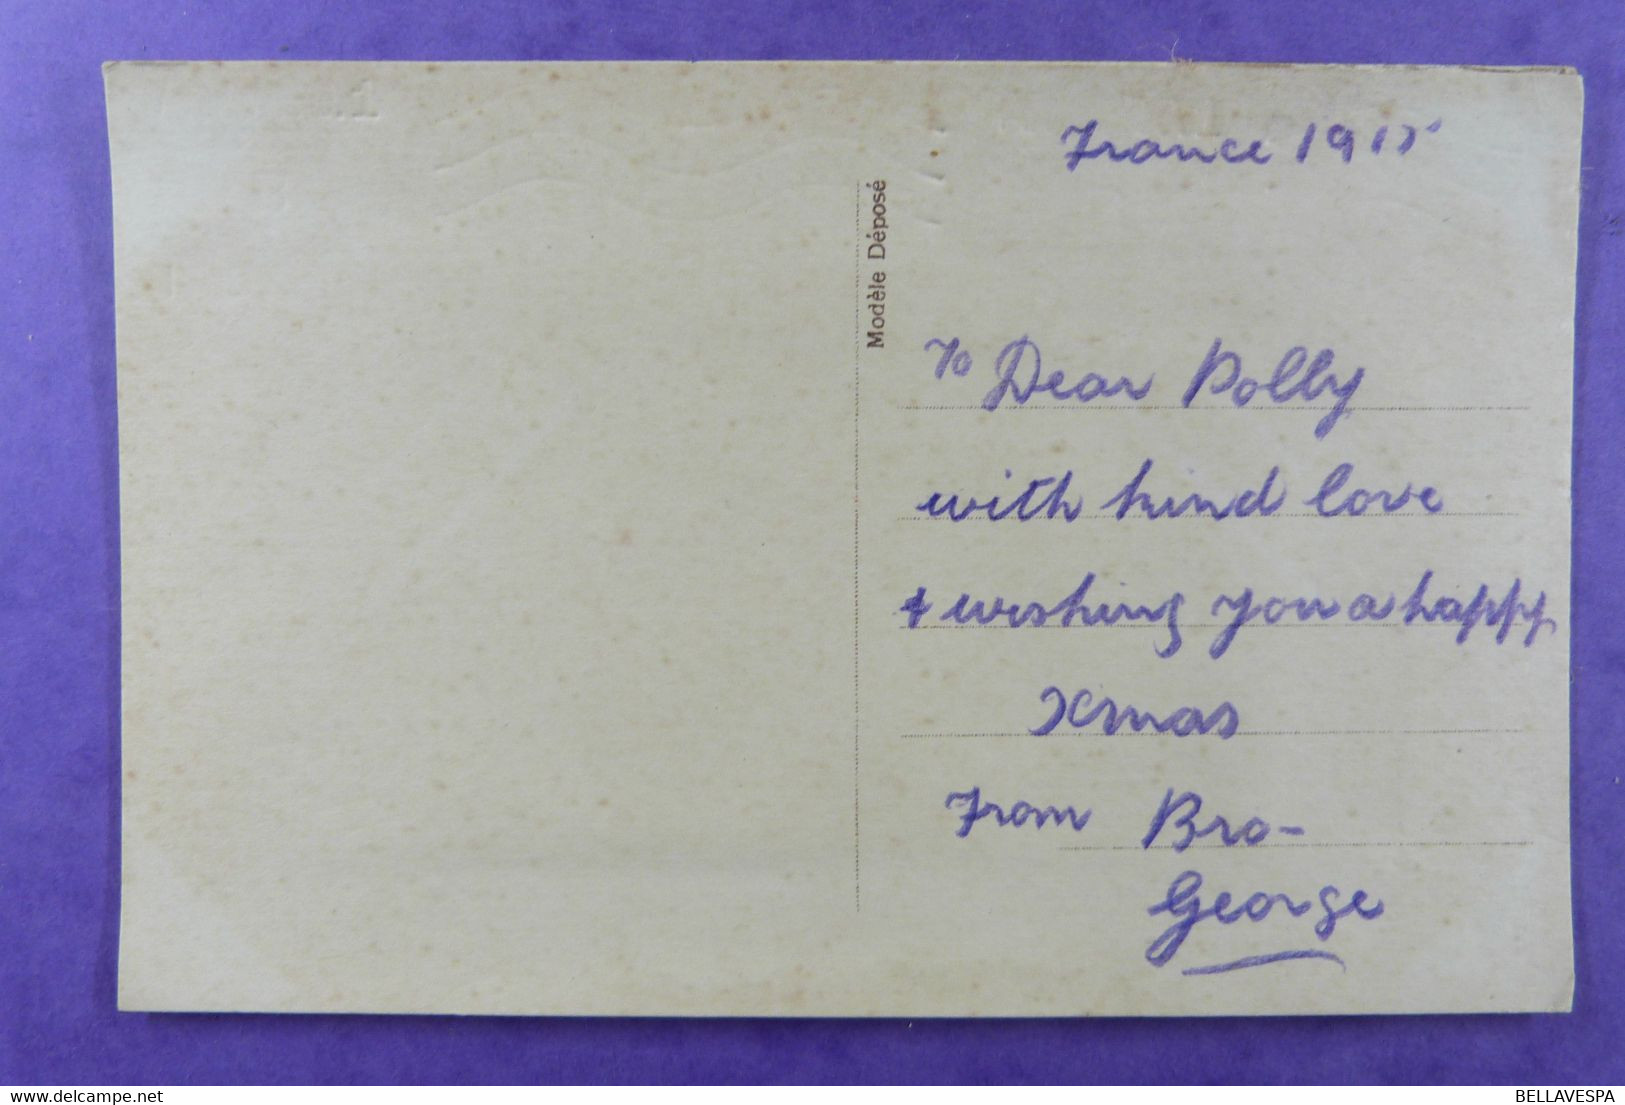 France 1915
Modèle Déposé
To Dear Polly
with kind love
& wishing you a happy
Xmas
From Bro-
George
delcampe.net
BELLAVESPA